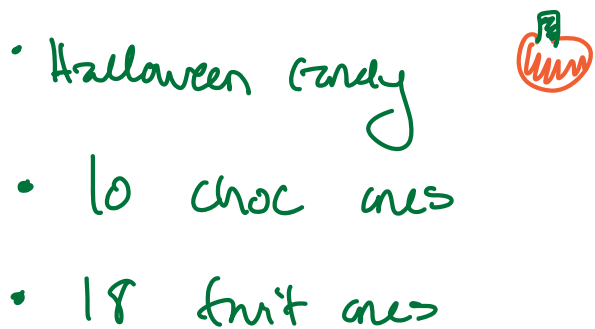 • Halloween candy
• 10 choc ones
• 18 fruit ones